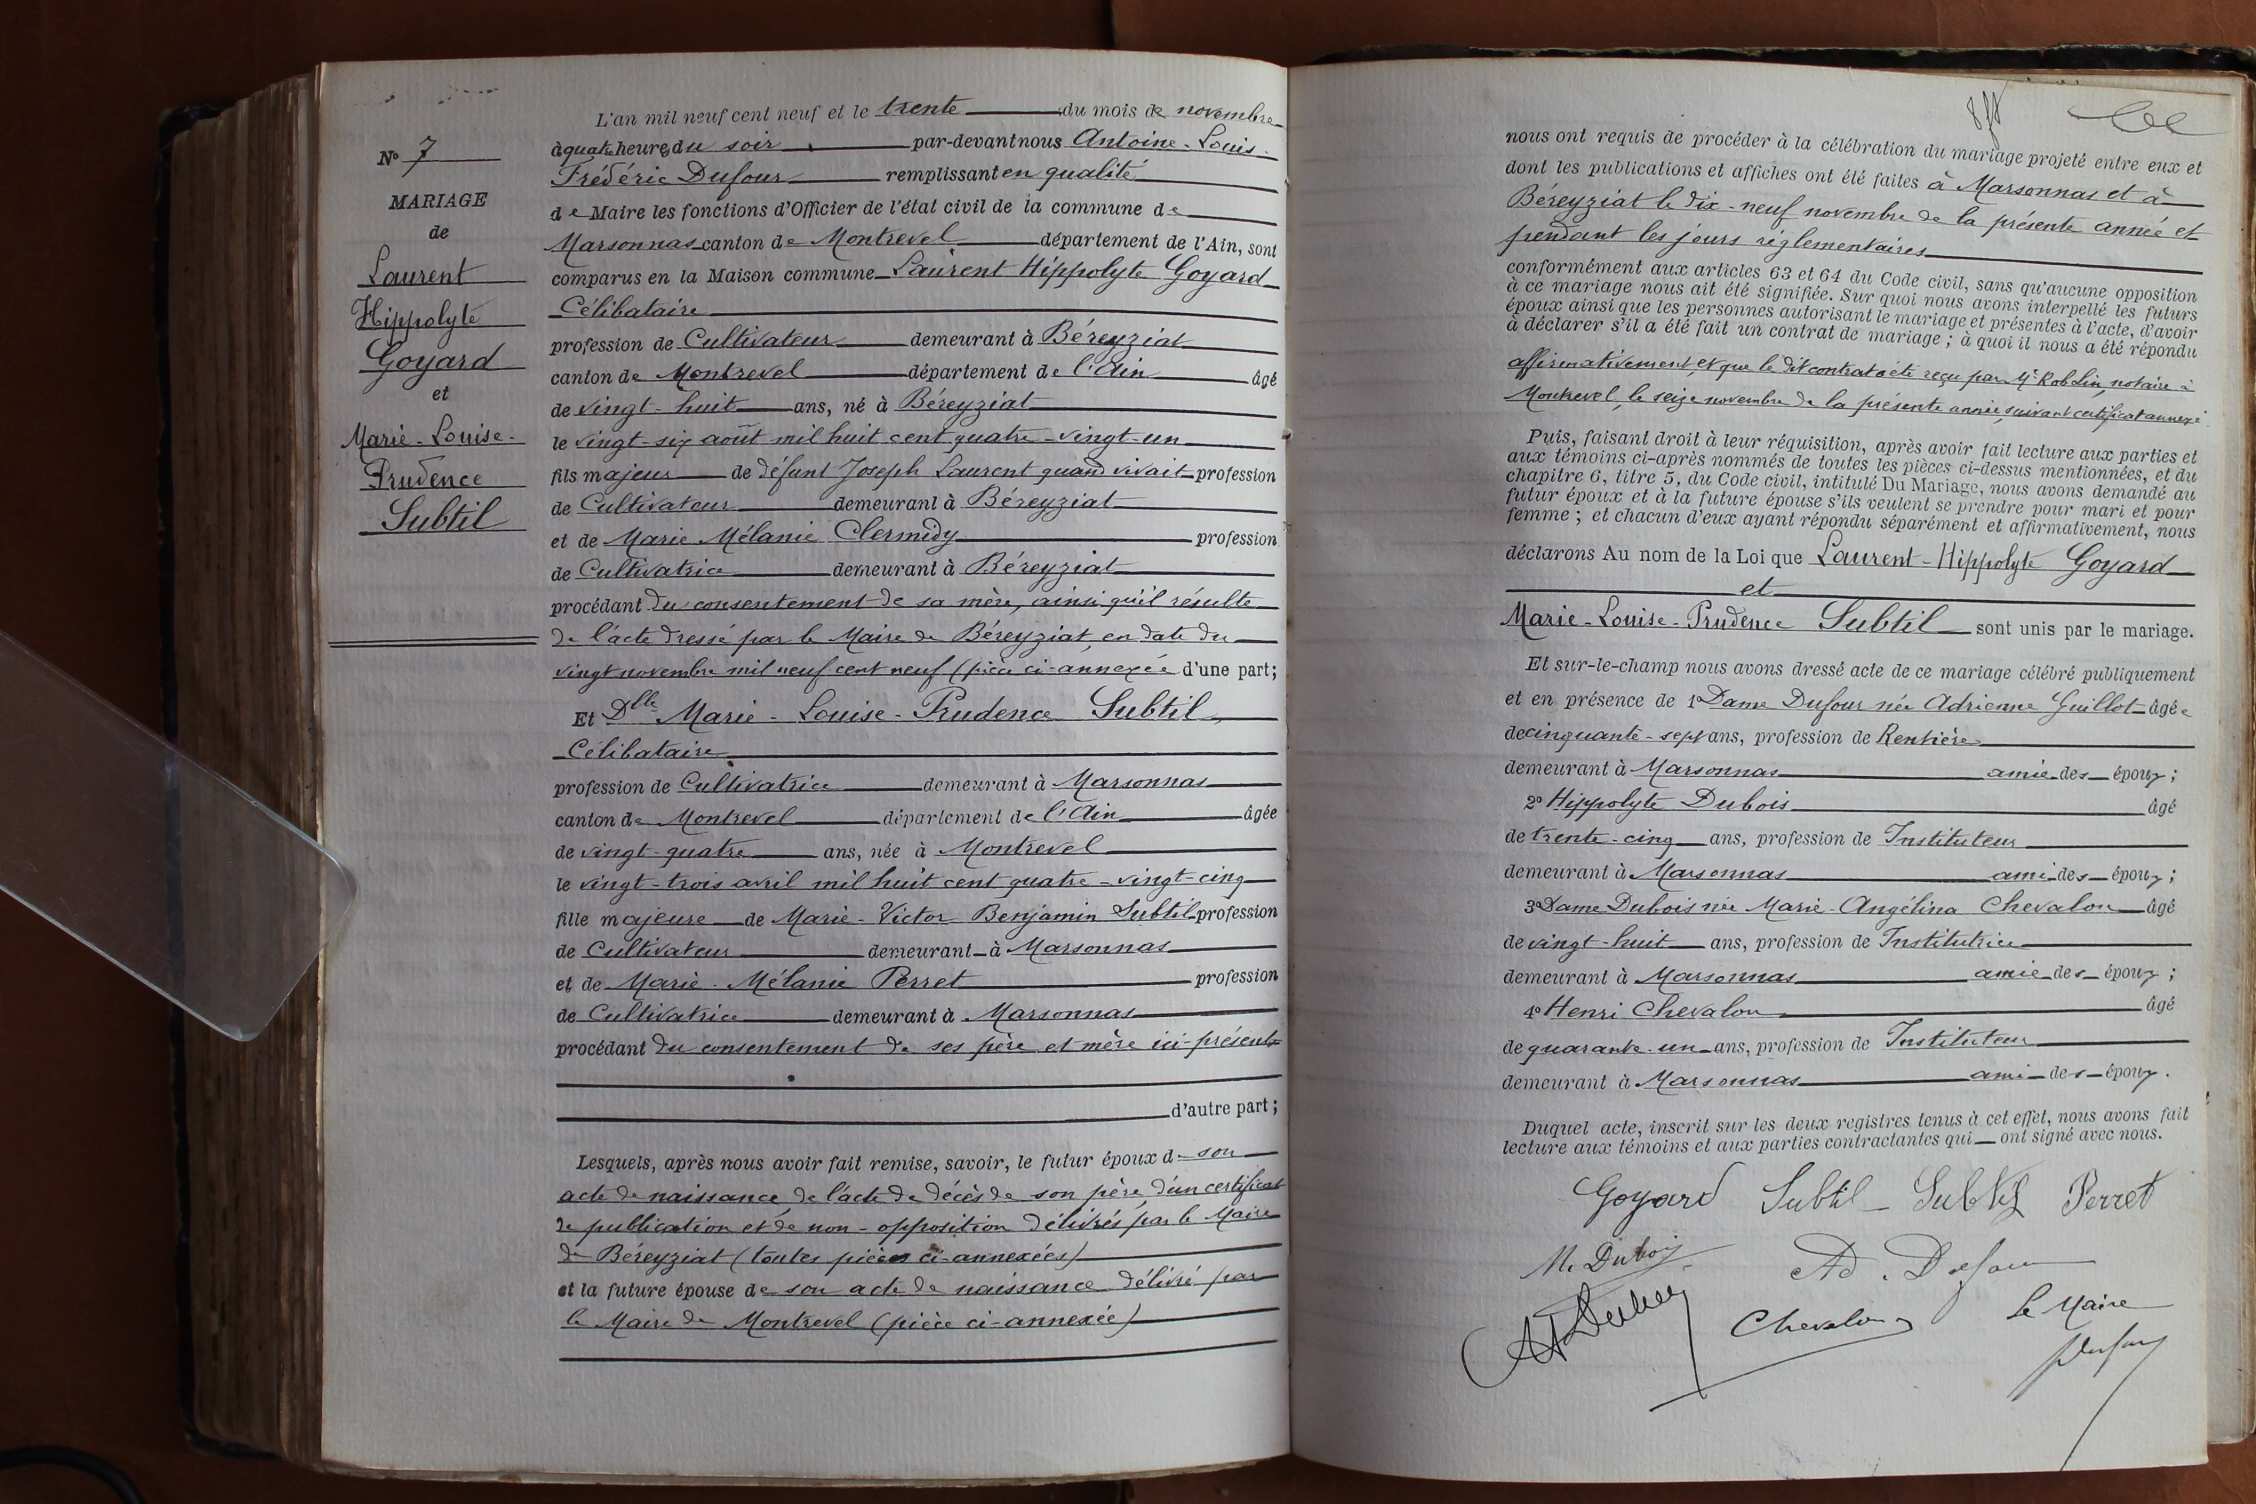 N° 7
MARIAGE
de
Laurent
Hippolyte
Goyard
et
Marie-Louise-
Prudence
Subtil
L'an mil neuf cent neuf et le trente du mois de novembre
à quatre heures du soir par-devant nous Antoine-Louis-
Frédéric Dufour remplissant en qualité
de Maire les fonctions d'Officier de l'état civil de la commune de
Marsonnas canton de Montrevel département de l'Ain, sont
comparus en la Maison commune Laurent Hippolyte Goyard
Célibataire
profession de Cultivateur demeurant à Béreyziat
canton de Montrevel département de l'Ain âgé
de vingt-huit ans, né à Béreyziat
le vingt-six août mil huit cent quatre-vingt-un
fils majeur de défunt Joseph Laurent quand vivait profession
de Cultivateur demeurant à Béreyziat
et de Marie Mélanie Clermidy profession
de Cultivatrice demeurant à Béreyziat
procédant du consentement de sa mère, ainsi qu'il résulte
de l'acte dressé par le Maire de Béreyziat, en date du
vingt novembre mil neuf cent neuf (pièce ci-annexée d'une part;
Et Dlle Marie-Louise-Prudence Subtil,
Célibataire
profession de Cultivatrice demeurant à Marsonnas
canton de Montrevel département de l'Ain âgée
de vingt-quatre ans, née à Montrevel
le vingt-trois avril mil huit cent quatre-vingt-cinq
fille majeure de Marie-Victor Benjamin Subtil profession
de Cultivateur demeurant à Marsonnas
et de Marie-Mélanie Perret profession
de Cultivatrice demeurant à Marsonnas
procédant du consentement de ses père et mère ici-présents
d'autre part;
Lesquels, après nous avoir fait remise, savoir, le futur époux de son
acte de naissance, de l'acte de décès de son père, d'un certificat
de publication et de non-opposition délivrés par le Maire
de Béreyziat (toutes pièces ci-annexées)
et la future épouse de son acte de naissance délivré par
le Maire de Montrevel (pièce ci-annexée)
nous ont requis de procéder à la célébration du mariage projeté entre eux et
dont les publications et affiches ont été faites à Marsonnas et à
Béreyziat le dix-neuf novembre de la présente année et
pendant les jours réglementaires
conformément aux articles 63 et 64 du Code civil, sans qu'aucune opposition
à ce mariage nous ait été signifiée. Sur quoi nous avons interpellé les futurs
époux ainsi que les personnes autorisant le mariage et présentes à l'acte, d'avoir
à déclarer s'il a été fait un contrat de mariage; à quoi il nous a été répondu
affirmativement, et que le dit contrat a été reçu par Me Roblin, notaire à
Montrevel, le seize novembre de la présente année, suivant certificat annexé.
Puis, faisant droit à leur réquisition, après avoir fait lecture aux parties et
aux témoins ci-après nommés de toutes les pièces ci-dessus mentionnées, et du
chapitre 6, titre 5, du Code civil, intitulé Du Mariage, nous avons demandé au
futur époux et à la future épouse s'ils veulent se prendre pour mari et pour
femme; et chacun d'eux ayant répondu séparément et affirmativement, nous
déclarons Au nom de la Loi que Laurent-Hippolyte Goyard
et
Marie-Louise-Prudence Subtil sont unis par le mariage.
Et sur-le-champ nous avons dressé acte de ce mariage célébré publiquement
et en présence de 1° Dame Dufour née Adrienne Guillot âgée
de cinquante-sept ans, profession de Rentière
demeurant à Marsonnas amie des époux;
2° Hippolyte Dubois âgé
de trente-cinq ans, profession de Instituteur
demeurant à Marsonnas ami des époux;
3° Dame Dubois née Marie-Angélina Chevalon âgé
de vingt-huit ans, profession de Institutrice
demeurant à Marsonnas amie des époux;
4° Henri Chevalon âgé
de quarante-un ans, profession de Instituteur
demeurant à Marsonnas ami des époux.
Duquel acte, inscrit sur les deux registres tenus à cet effet, nous avons fait
lecture aux témoins et aux parties contractantes qui ont signé avec nous.
Goyard Subtil Subtil Perret
M. Dubois Ad. Dufour
Chevalon Le Maire
Dufour